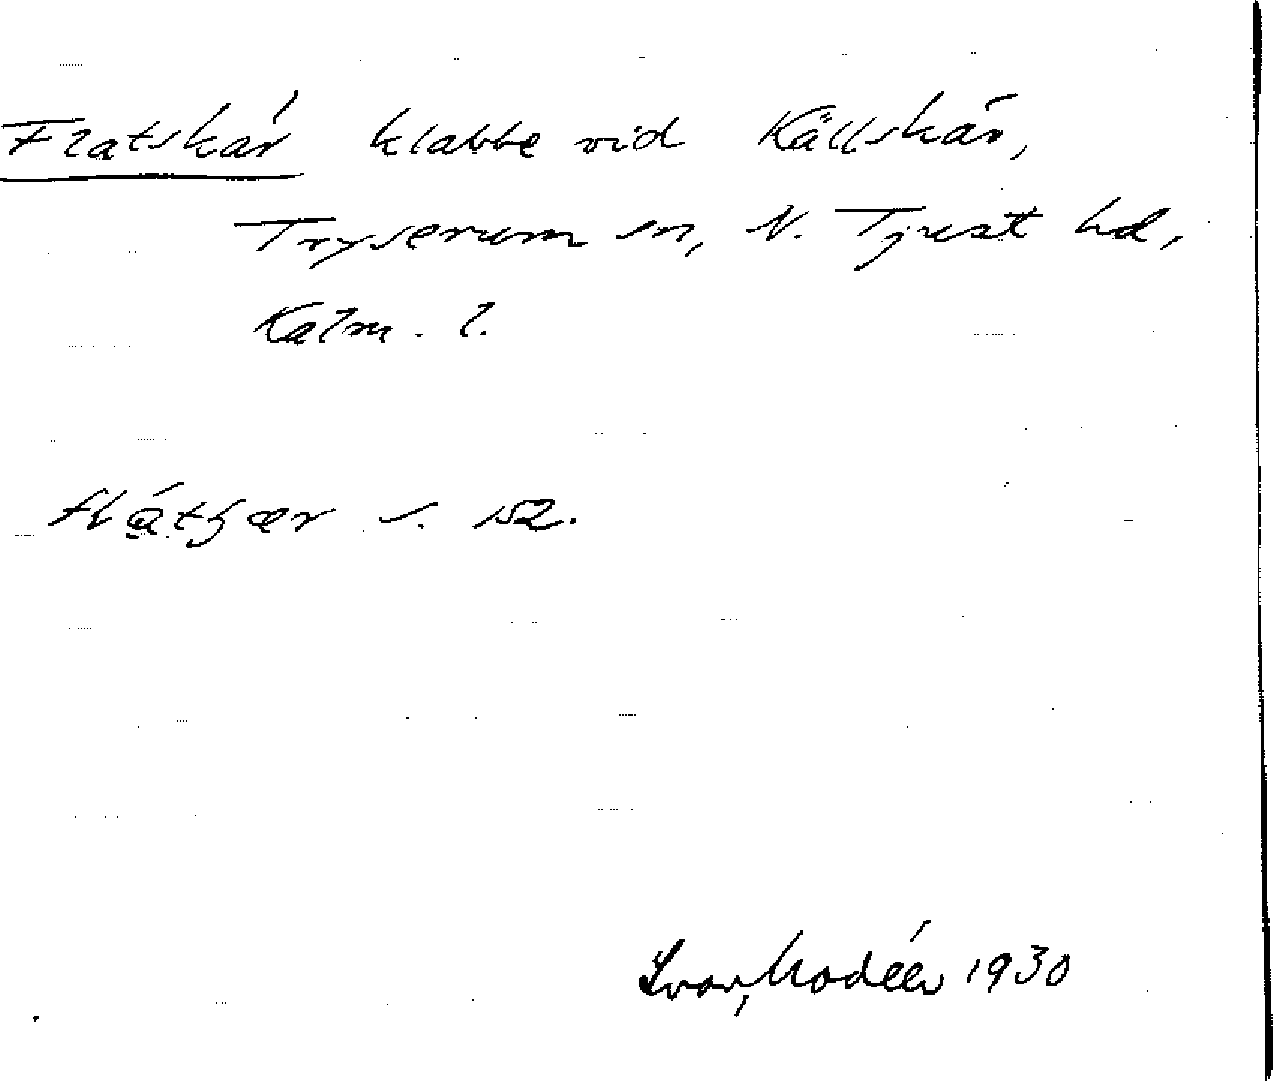 Flatskär klabbe vid Källskär,
Tryserum sn, N. Tjust hd,
Kalm. l.
s. 152.
Ivar Modéer 1930